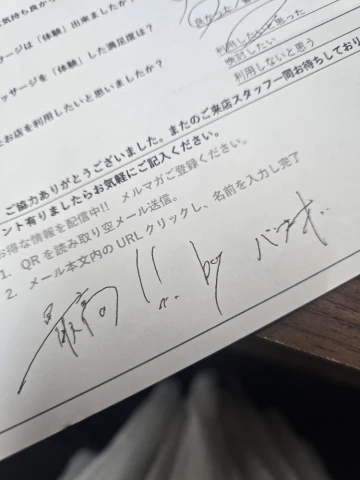 気持ち良かっ
良かった
ッサージは「体験」出来ましたか？
ッサージを「体験」した満足度は？
利用したいと思った
検討したい
利用しないと思う
お店を利用したいと思いましたか？
ご協力ありがとうございました。またのご来店スタッフ一同お待ちしており
ント有りましたらお気軽にご記入ください。
お得な情報を配信中!! メルマガご登録ください。
1. QRを読み取り空メール送信。
2. メール本文内のURLクリックし、名前を入力し完了
最高!! by